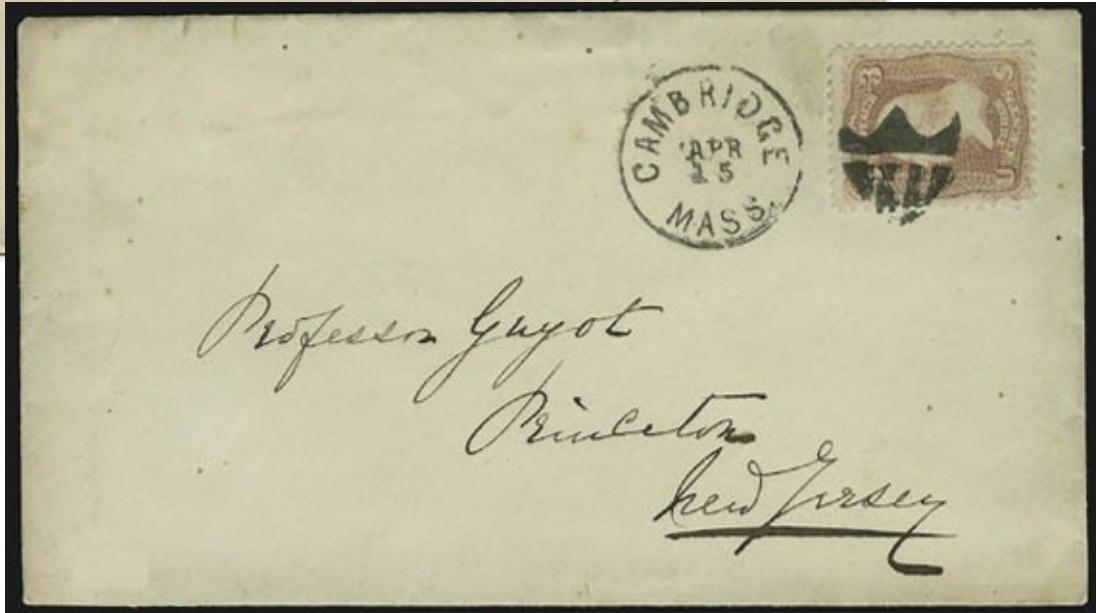 CAMBRIDGE
APR
15
MASS.
Professor Guyot
Princeton
New Jersey